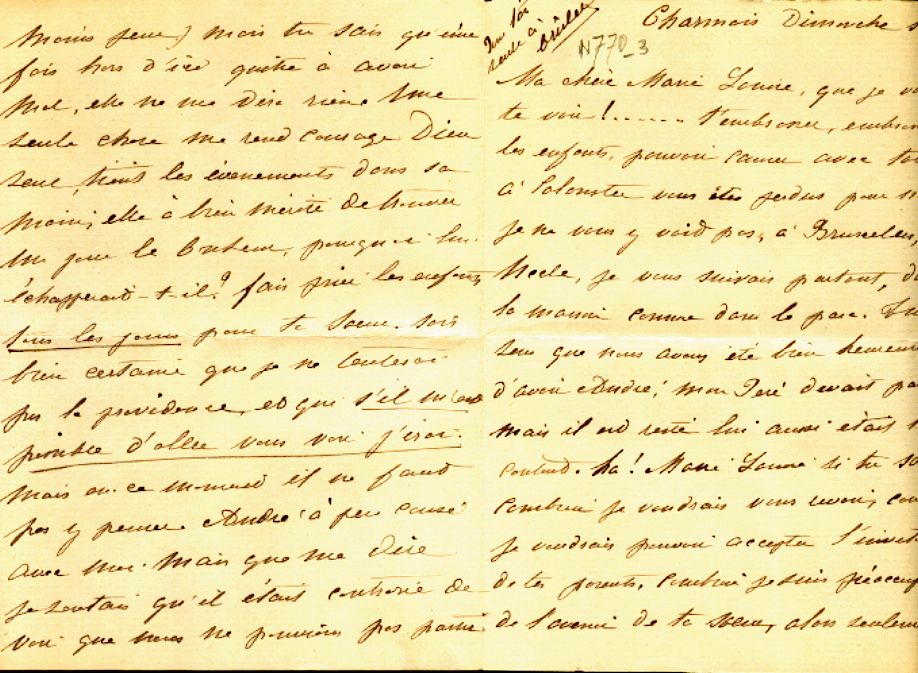 Pour toi
seule à
brûler
N770_3
Charmois Dimanche
Ma chère Marie Louise, que je
te voir !...... t'embrasser, embrasser
les enfants, pouvoir causer avec toi
à Solonster vous êtes perdus pour
je ne vous y vois pas, à Bruxelles,
je vous suivais partout,
la maison comme dans le parc.
sens que nous avons été bien heureux
d'avoir André, mon Père devait
mais il est resté lui aussi était
content. ha ! Marie Louise si tu
combien je voudrais vous revoir,
je voudrais pouvoir accepter
de tes parents, combien je suis
de l'avenir de ta sœur, alors seulement
moins seule) mais tu sais qu'une
fois hors d'ici quitte à avoir
mal, elle ne me dira rien. Une
seule chose me rend courage Dieu
seul tient les évènements dans sa
main, elle a bien mérité de trouver
un jour le bonheur, pourquoi lui
échapperait-t-il ? fais prier les enfants
tous les jours pour ta sœur. sois
bien certaine que je ne tenterai
pas la providence, et que s'il m'est
possible d'aller vous voir j'irai.
mais en ce moment il ne faut
pas y penser. André a peu causé
avec moi. mais que me dire
je sentais qu'il était contrarié de
voir que nous ne pouvions pas partir